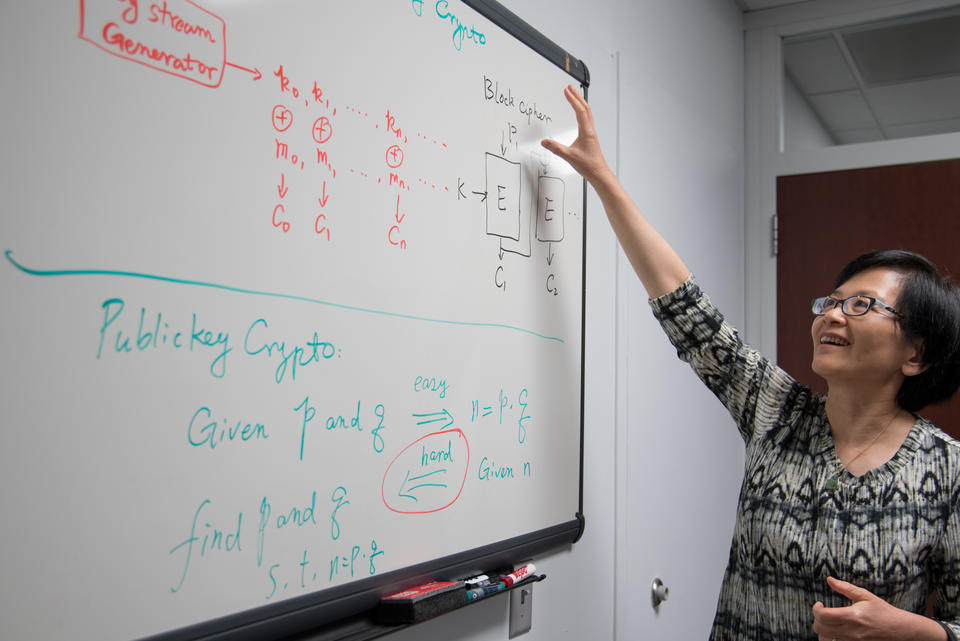 Crypto
stream
Generator
k₀, k₁, ....., kₙ, .....
⊕ ⊕ ⊕
m₀, m₁, ....., mₙ, .....
↓ ↓ ↓
C₀ C₁ Cₙ
Block cipher
P₁
K → E E ...
C₁ C₂
Public key Crypto:
Given p and q easy ⇒ n = p · q
hard ⇐ Given n
find p and q
s.t. n = p · q
EXPO